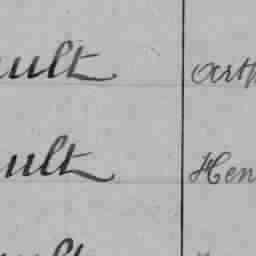 ult Arth
ult Hen